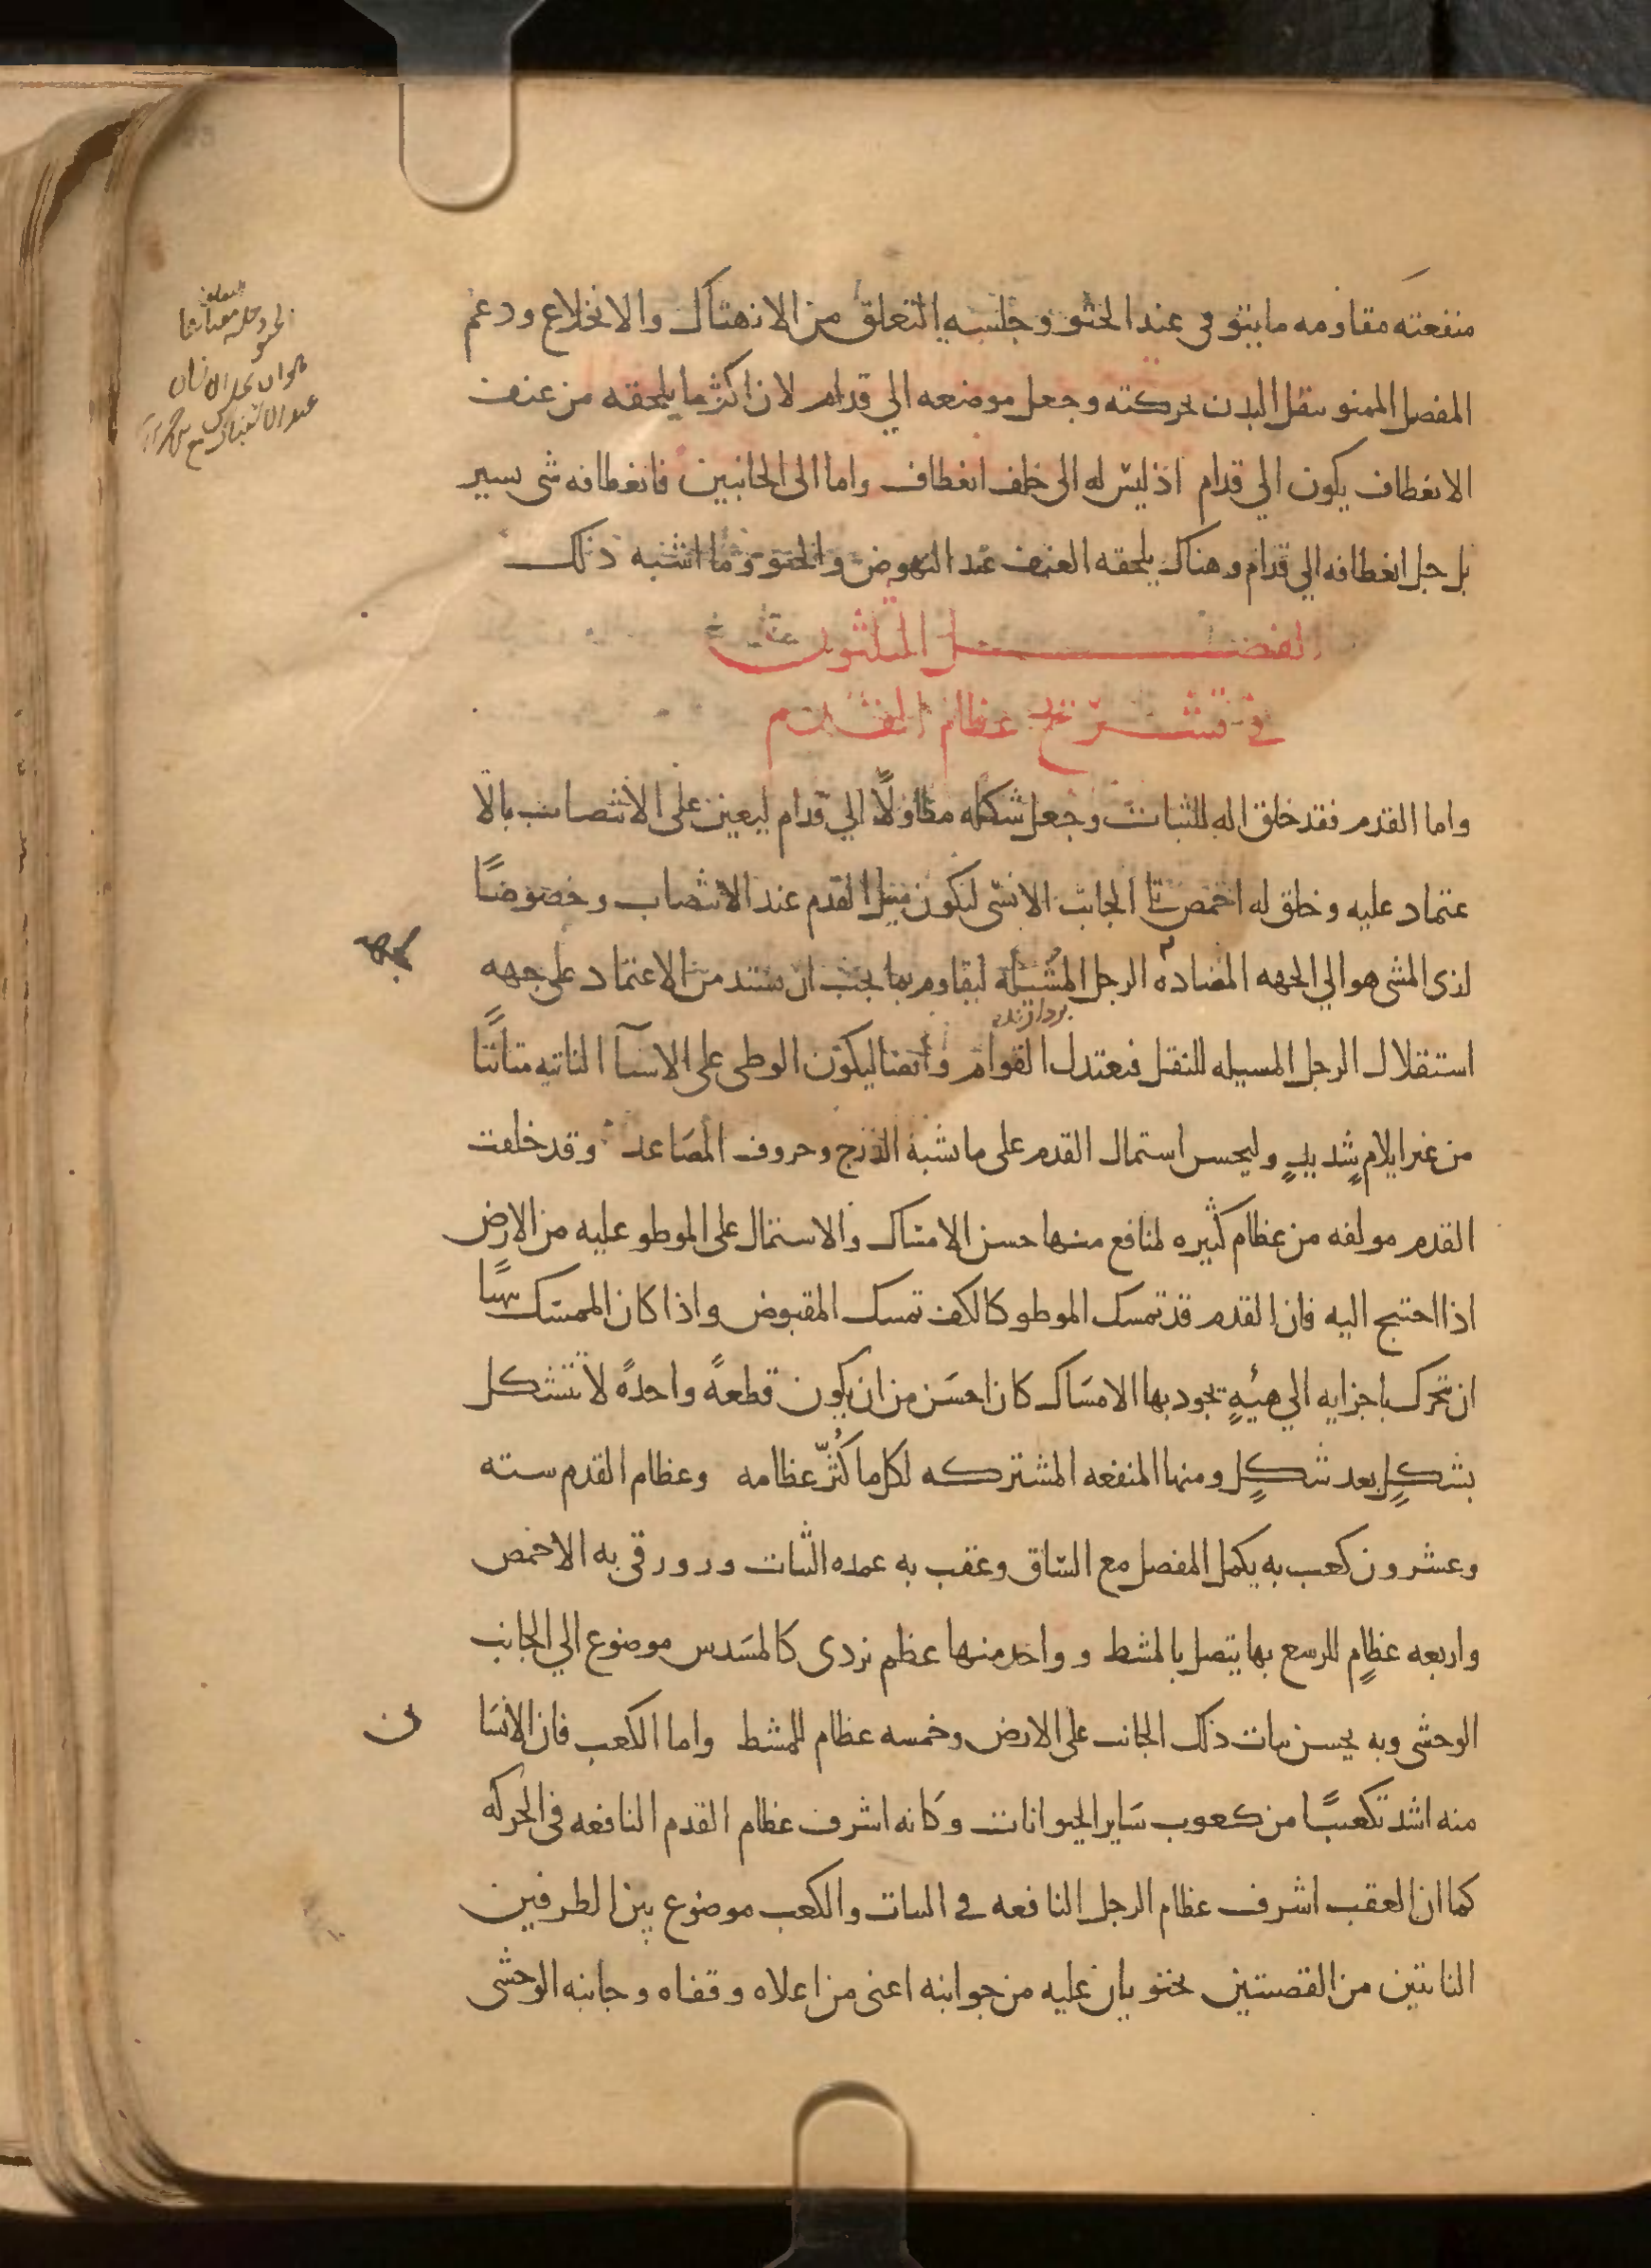 منفعته مقاومه ما يتوقى عند الجثو وجلسه التعلق من الانهتاك والانخلاع ودعم
المفصل الممنو بثقل البدن بحركته وجعل موضعه الي قدام لان اكثر ما يلحقه من عنف
الانعطاف يكون الي قدام اذ ليس له الى خلف انعطاف واما الى الجانبين فانعطافه شى يسير
بل جل انعطافه الي قدام وهناك يلحقه العنف عند النهوض والجثو وما اشبه ذلك
الفصل الثلثون
في تشريح عظام القدم
واما القدم فقد خلق اله للثبات وجعل شكله مطاولًا الي قدام ليعين على الانتصاب بالا
عتماد عليه وخلق له اخمص تلى الجانب الانسى ليكون ميل القدم عند الانتصاب وخصوصًا
لذى المشى هو الي الجهه المضاده الرجل المشيله ليقاوم بما يجب ان يشتد من الاعتماد على جهه
استقلال الرجل المسيله للنقل فيعتدل القوام وايضا ليكون الوطى على الاشيآ الناتيه متاتيًا
من غير ايلام شديدٍ وليحسن استمال القدم على ما يشبه الدرج وحروف المصاعد وقد خلقت
القدم مولفه من عظام كثيره لمنافع منها حسن الامساك والاستمال على الموطو عليه من الارض
اذا احتيج اليه فان القدم قد تمسك الموطو كالكف تمسك المقبوض واذا كان الممسك يتهيا
ان تحرك باجزايه الي هيئةٍ يجود بها الامساك كان احسن من ان يكون قطعةً واحدةً لا تتشكل
بشكلٍ بعد شكلٍ ومنها المنفعه المشتركه لكل ما كُثّر عظامه وعظام القدم سته
وعشرون كعب به يكمل المفصل مع الساق وعقب به عمده الثبات وزورقى به الاخمص
واربعه عظامٍ للرسغ بها يتصل بالمشط وواحد منها عظم نردى كالمسدس موضوع الي الجانب
الوحشى وبه يحسن ثبات ذلك الجانب على الارض وخمسه عظام للمشط واما الكعب فان الانسا ن
منه اشد تكعيبًا من كعوب ساير الحيوانات وكانه اشرف عظام القدم النافعه في الحركه
كما ان العقب اشرف عظام الرجل النافعه في الثبات والكعب موضوع بين الطرفين
الناتيتين من القصبتين يحتويان عليه من جوانبه اعنى من اعلاه وقفاه وجانبه الوحشى